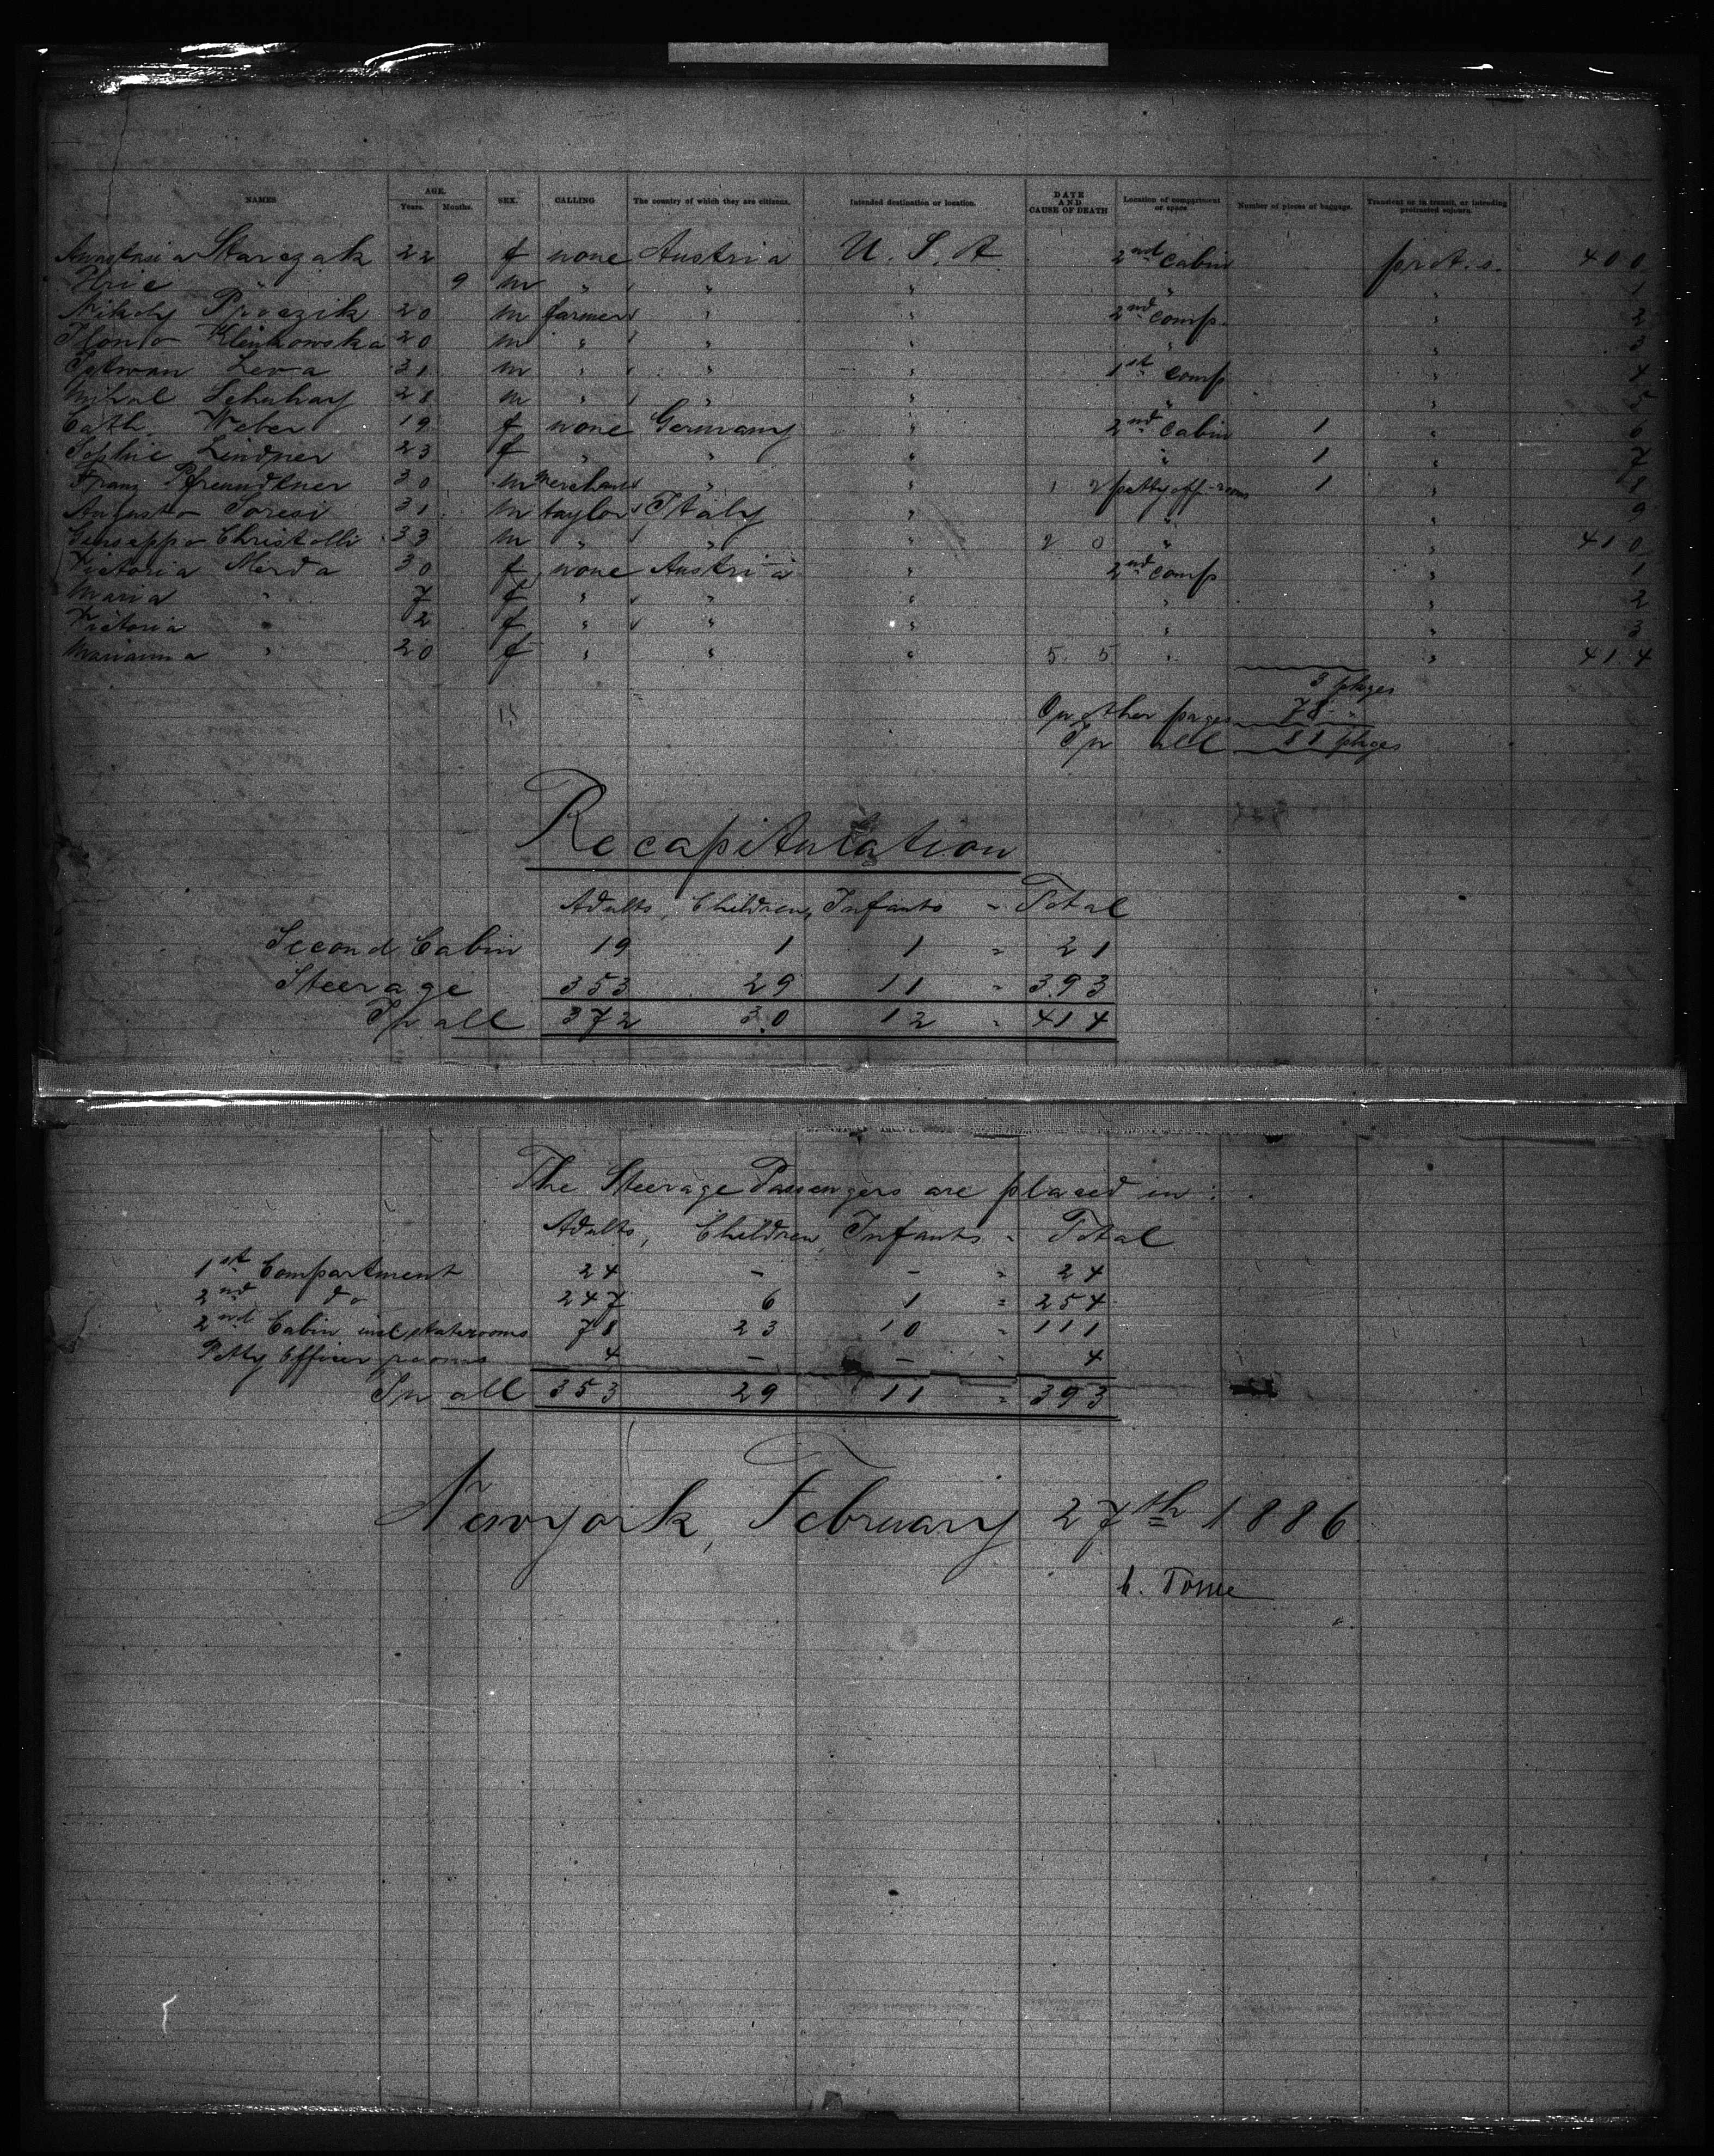 NAMES AGE. Years. Months. SEX. CALLING The country of which they are citizens. Intended destination or location. DATE AND CAUSE OF DEATH Location of compartment or space Number of pieces of baggage. Transient or in transit, or intending protracted sojourn.
Anastasia Starczak 22 f none Austria U. S. A. 2nd Cabin prot. s. 400
" 9 m " " " " " 1
20 m farmer " " 2nd comp. " 2
20 m " " " " " 3
31 m " " " 1st comp " 4
28 m " " " " " 5
Cath. Weber 19 f none Germany " 2nd Cabin 1 " 6
Sophie Lindner 23 f " " " " 1 " 7
Franz 30 m merchant " " 1 2 petty off. rooms 1 " 8
Augusto Soresi 31 m taylor Italy " " " 9
Christolli 33 m " " " 2 0 " " 410
Victoria Merda 30 f none Austria " 2nd comp " 1
Maria " 7 f " " " " " 2
Victoria " 2 f " " " " " 3
Marianna " 20 f " " " 5 5 " " 414
3 pkges
15 On other pages 78 "
In all 81 pkges
Recapitulation
Adults, Children, Infants = Total
Second Cabin 19 1 1 = 21
Steerage 353 29 11 = 393
In all 372 30 12 = 414
The Steerage Passengers are placed in:
Adults, Children, Infants = Total
1st Compartment 24 - - = 24
2nd do 247 6 1 = 254
2nd Cabin incl staterooms 78 23 10 = 111
Petty Officer rooms 4 - - = 4
In all 353 29 11 = 393
Newyork, February 27th 1886.